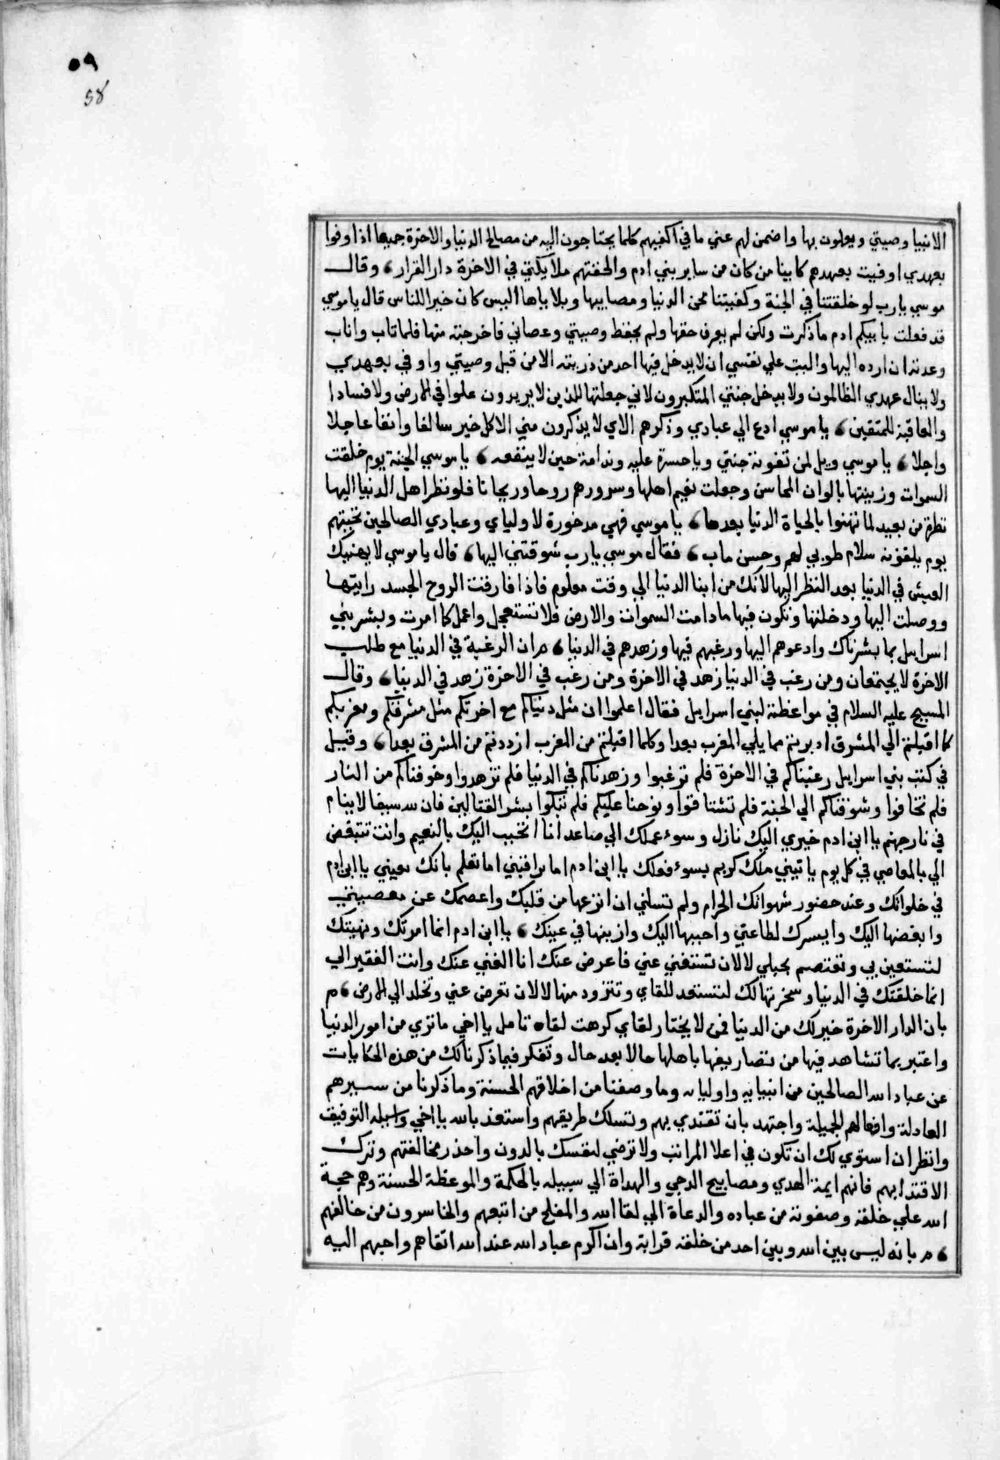 ٥٩
58
الانبيا وصيتي ويعملون بها واضمن لهم عني ما في اكفيهم كلما يحتاجون اليه من مصالح الدنيا والاخرة جميعا اذا اوفوا
بعهدي اوفيت بعهدهم كاينا من كان من ساير بني ادم والحقتهم ملايكتي في الاخرة دار القرار، وقال
موسي يارب لو خلقتنا في الجنة وكفيتنا محن الدنيا ومصايبها وبلاياها اليس كان خير اللناس قال يا موسي
قد فعلت بابيكم ادم ما ذكرت ولكن لم يعرف حقها ولم يحفظ وصيتي وعصاني فاخرجته منها فلما تاب واناب
وعدته ان ارده اليها واليت علي نفسي ان لا يدخل فيها احد من ذريته الا من قبل وصيتي واوفي بعهدي
ولا ينال عهدي الظالمون ولا يدخل جنتي المتكبرون لاني جعلتها للذين لا يريدون علوا في الارض ولا فسادا
والعاقبة للمتقين، يا موسي ادع الي عبادي وذكرهم الاي لا يذكرون مني الا كل خير سالفا وانفا عاجلا
واجلا، يا موسي ويل لمن تفوته جنتي ويا حسرة عليه وندامة حين لا ينفعه، يا موسي الجنة يوم خلقت
السموات وزينتها بالوان المحاسن وجعلت نعيم اهلها وسرورهم روحا وريحانا فلو نظر اهل الدنيا اليها
نظرة من بعيد لما تهنوا بالحياة الدنيا بعدها، يا موسي فهي مدخورة لاولياي وعبادي الصالحين تحيتهم
يوم يلقونه سلام طوبي لهم وحسن ماب، فقال موسي يارب شوقتني اليها، قال يا موسي لا يهنيك
العيش في الدنيا بعد النظر اليها لانك من ابنا الدنيا الي وقت معلوم فاذا فارقت الروح الجسد رايتها
ووصلت اليها ودخلتها وتكون فيها ما دامت السموات والارض فلا تستعجل واعمل كما امرت وبشر بني
اسرايل بما بشرناك وادعوهم اليها ورغبهم فيها وزهدهم في الدنيا، م ان الرغبة في الدنيا مع طلب
الاخرة لا يجتمعان ومن رغب في الدنيا زهد في الاخرة ومن رغب في الاخرة زهد في الدنيا، وقال
المسيح عليه السلام في مواعظه لبني اسرايل فقال اعلموا ان مثل دنياكم مع اخرتكم مثل مشرقكم ومغربكم
كلما اقبلتم الي المشرق ادبرتم مما يلي المغرب بعدا وكلما اقبلتم من المغرب ازددتم من المشرق بعدا، وقيل
في كتب بني اسرايل رغبناكم في الاخرة فلم ترغبوا وزهدناكم في الدنيا فلم تزهدوا وخوفناكم من النار
فلم تخافوا وشوقناكم الي الجنة فلم تشتاقوا ونوحنا عليكم فلم تبكوا بشر القتالين فان لله سيفا لا ينام
في نار جهنم يا ابن ادم خيري اليك نازل وسوء عملك الي صاعد انا اتحبب اليك بالنعيم وانت تتبغض
الي بالمعاصي في كل يوم ياتيني ملك كريم بسوء فعلك يا ابن ادم اما تراقبني اما تعلم بانك بعيني يا ابن ادم
في خلواتك وعند حضور شهواتك الحرام ولم تسلني ان انزعها من قلبك واعصمك عن معصيتي
وابغضها اليك وايسرك لطاعتي واحببها اليك وازينها في عينك، يا ابن ادم انما امرتك ونهيتك
لتستعين بي وتعتصم بحبلي لا لان تستغني عني فاعرض عنك انا الغني عنك وانت الفقير الي
انما خلقتك في الدنيا وسخرتها لك لتستعد للقاي وتتزود منها لا لان تعرض عني وتخلد الي الارض، م
بان الدار الاخرة خير لك من الدنيا فمن لا يختار لقاي كرهت لقاه تامل يا اخي ما تري من امور الدنيا
واعتبر بما تشاهد فيها من تصاريفها باهلها حالا بعد حال وتفكر فيما ذكرنا لك من هذه الحكايات
عن عباد الله الصالحين من انبيايه واوليايه وما وصفنا من اخلاقهم الحسنة وما ذكرنا من سيرهم
العادلة وافعالهم الجميلة واجتهد بان تقتدي بهم وتسلك طريقهم واستعذ بالله يا اخي واسله التوفيق
وانظر ان استوي لك ان تكون في اعلا المراتب ولا ترضي لنفسك بالدون واحذر مخالفتهم وترك
الاقتدا بهم فانهم ايمة الهدي ومصابيح الدجي والهداة الي سبيله بالحكمة والموعظة الحسنة وهم حجة
الله علي خلقه وصفوته من عباده والدعاة الي لقا الله والمفلح من اتبعهم والخاسرون من خالفهم
، م بانه ليس بين الله وبين احد من خلقه قرابة وان اكرم عباد الله عند الله اتقاهم واحبهم اليه